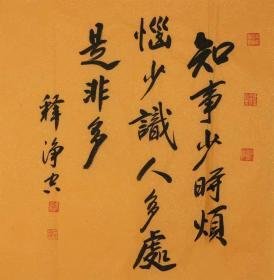 知事少時煩
惱少識人多處
是非多
釋淨空